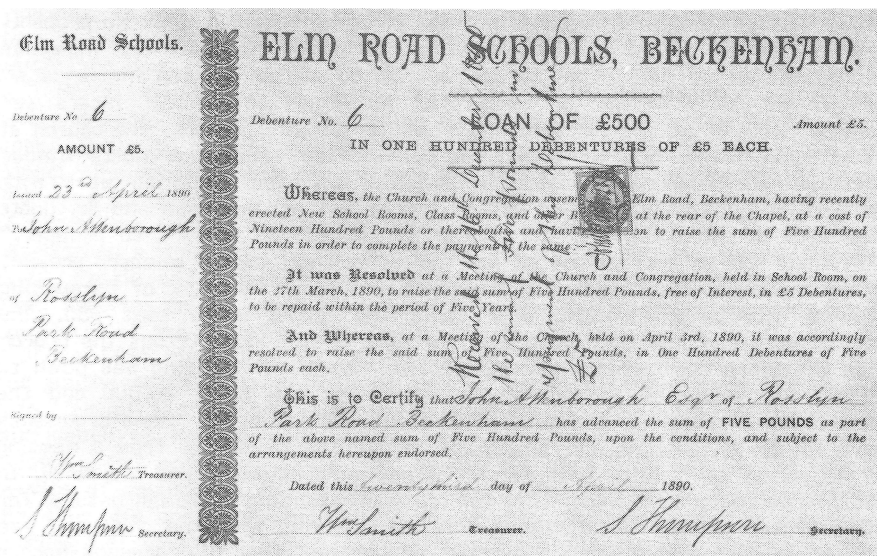 Elm Road Schools.
Debenture No 6
AMOUNT £5.
Issued 23rd April 1890
To John Attenborough
of Rosslyn
Park Road
Beckenham
Signed by
Wm Smith Treasurer.
S Thompson Secretary.
ELM ROAD SCHOOLS, BECKENHAM.
Debenture No. 6 LOAN OF £500 Amount £5.
IN ONE HUNDRED DEBENTURES OF £5 EACH.
Whereas, the Church and Congregation Elm Road, Beckenham, having recently
erected New School Rooms, Class Rooms, and other at the rear of the Chapel, at a cost of
Nineteen Hundred Pounds or thereabouts, and having to raise the sum of Five Hundred
Pounds in order to complete the payment of the same.
It was Resolved at a Meeting of the Church and Congregation, held in School Room, on
the 27th March, 1890, to raise the said sum of Five Hundred Pounds, free of Interest, in £5 Debentures,
to be repaid within the period of Five Years.
And Whereas, at a Meeting of the Church, held on April 3rd, 1890, it was accordingly
resolved to raise the said sum of Five Hundred Pounds, in One Hundred Debentures of Five
Pounds each.
This is to Certify that John Attenborough Esqr of Rosslyn
Park Road Beckenham has advanced the sum of FIVE POUNDS as part
of the above named sum of Five Hundred Pounds, upon the conditions, and subject to the
arrangements hereupon endorsed.
Dated this twentythird day of April 1890.
Wm Smith Treasurer. S Thompson Secretary.
Received this December 1890
the sum of five pounds in
payment of this debenture